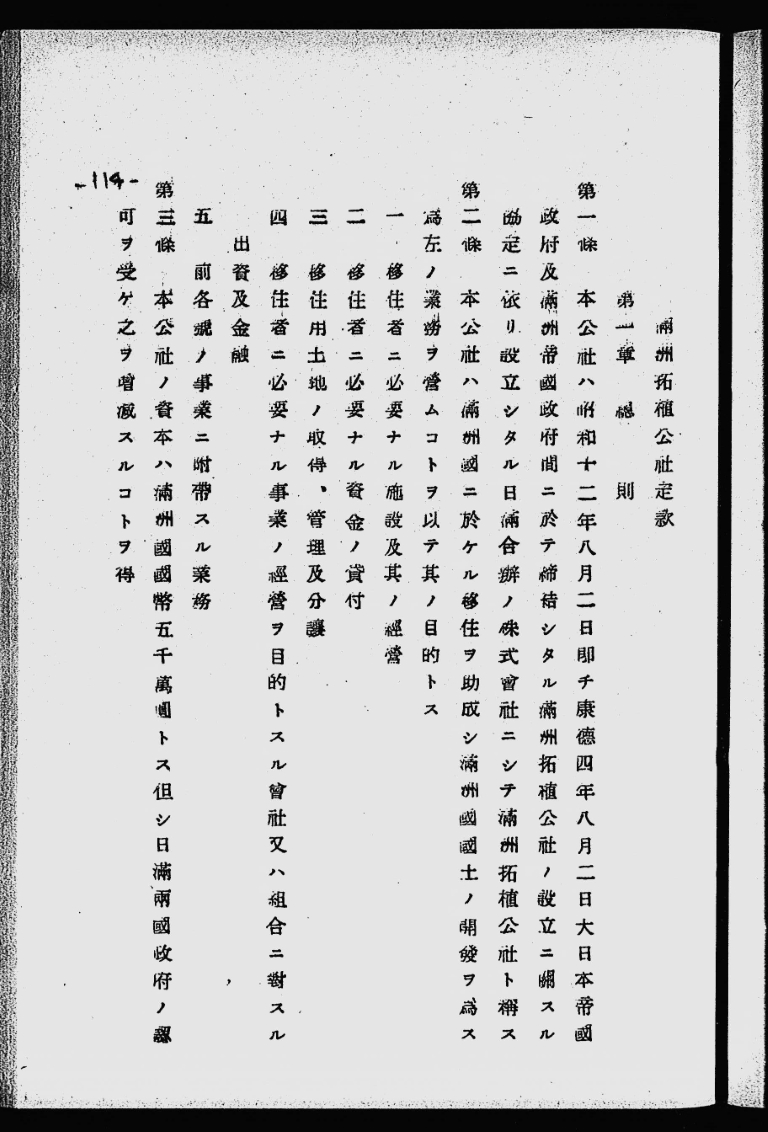 滿洲拓植公社定款
第一章 總則
第一條 本公社ハ昭和十二年八月二日卽チ康德四年八月二日大日本帝國
政府及滿洲帝國政府間ニ於テ締結シタル滿洲拓植公社ノ設立ニ關スル
協定ニ依リ設立シタル日滿合辦ノ株式會社ニシテ滿洲拓植公社ト稱ス
第二條 本公社ハ滿洲國ニ於ケル移住ヲ助成シ滿洲國國土ノ開發ヲ爲ス
爲左ノ業務ヲ營ムコトヲ以テ其ノ目的トス
一 移住者ニ必要ナル施設及其ノ經營
二 移住者ニ必要ナル資金ノ貸付
三 移住用土地ノ取得、管理及分讓
四 移住者ニ必要ナル事業ノ經營ヲ目的トスル會社又ハ組合ニ對スル
出資及金融
五 前各號ノ事業ニ附帶スル業務
第三條 本公社ノ資本ハ滿洲國國幣五千萬圓トス但シ日滿兩國政府ノ認
可ヲ受ケ之ヲ增減スルコトヲ得
-114-